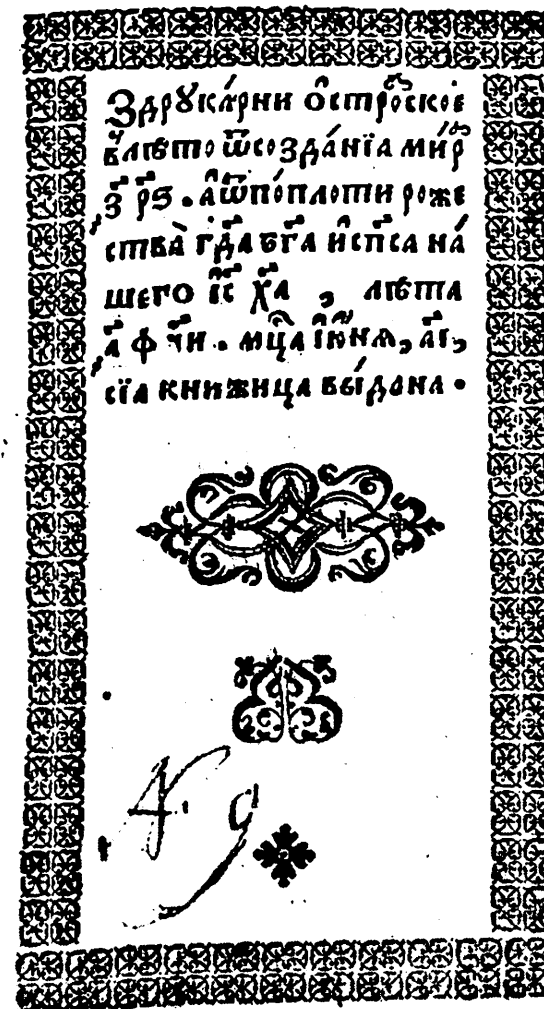 З друка́рни О҆стро́скоє
в лѣто ѿ созда́нїа ми́р
҂з҃ р҃ѕ . а҆ ѿ по́ плоти роже
ства̀ гд҃а бг҃а и҆ сп҃са на́
шего і҆с҃ х҃а , лѣта
҂а҃ ф ч҃и . мц҃а і҆ю҆нѧ, а҃і,
сїа книжица вы́дана .